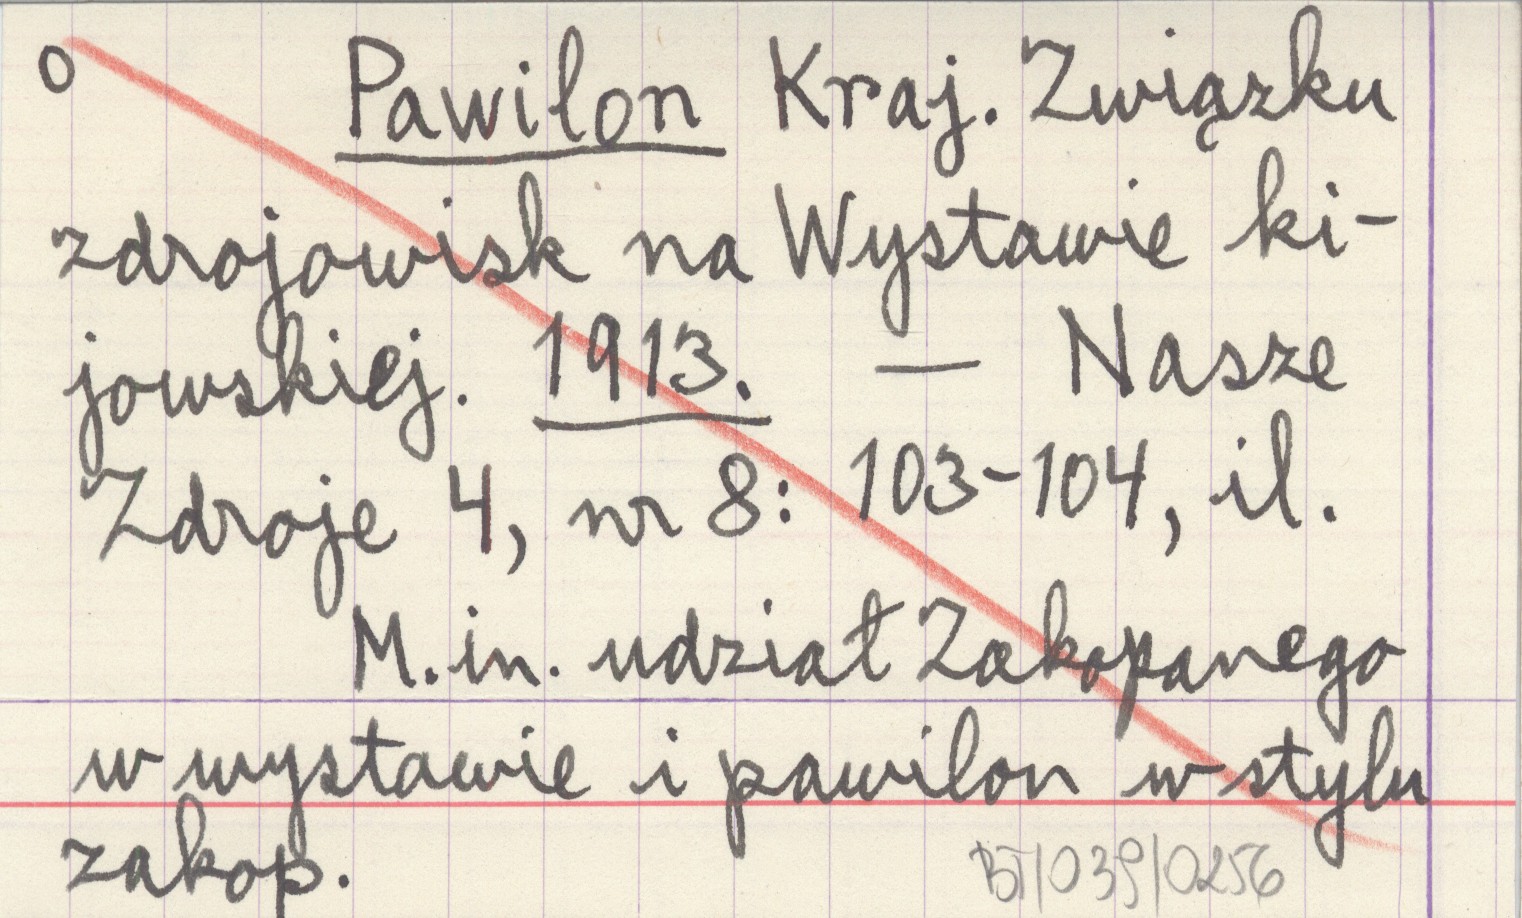 o Pawilon Kraj. Związku
zdrojowisk na Wystawie ki-
jowskiej. 1913. — Nasze
Zdroje 4, nr 8: 103-104, il.
M. in. udział Zakopanego
w wystawie i pawilon w stylu
zakop.
BT/039/0256